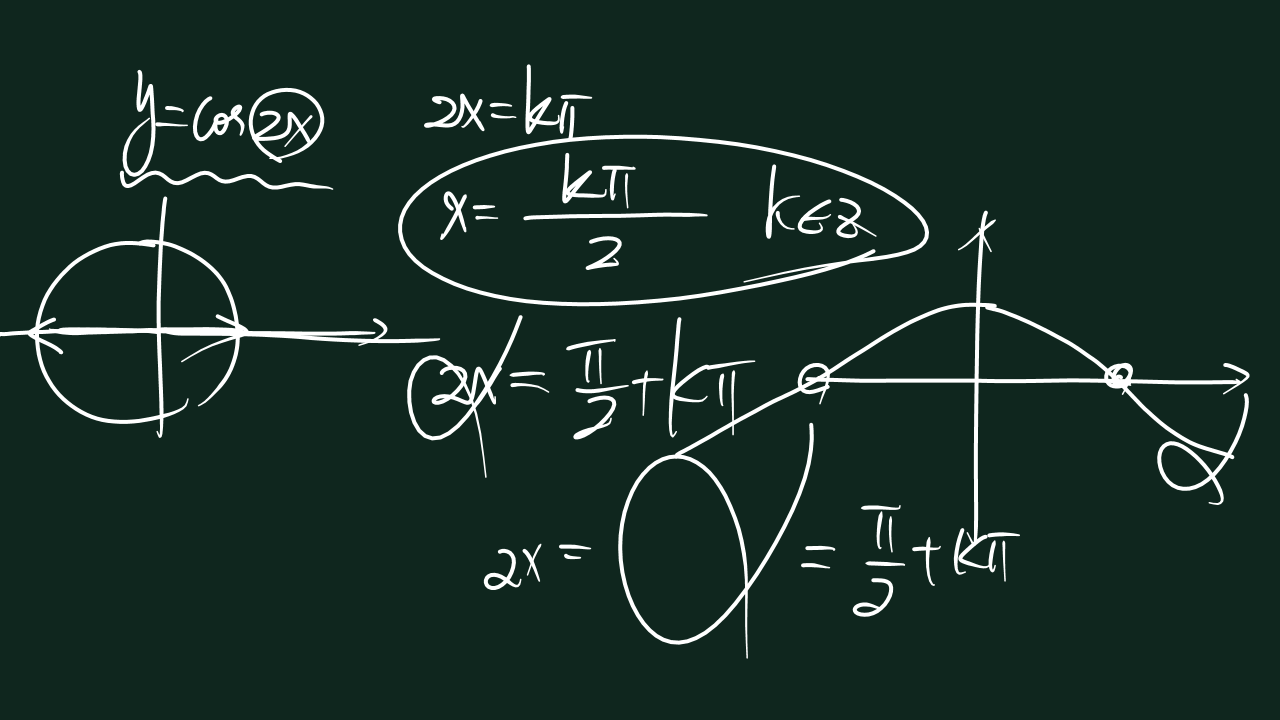 y=cos2x
2x=kπ
x=kπ/2 k∈z
αx=π/2+kπ
α
2x= α =π/2+kπ